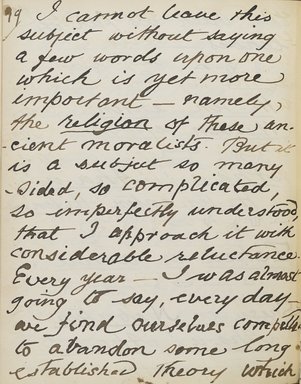 99 I cannot leave this
subject without saying
a few words upon one
which is yet more
important — namely,
the religion of these an-
-cient moralists. But it
is a subject so many
-sided, so complicated,
so imperfectly understood
that I approach it with
considerable reluctance.
Every year — I was almost
going to say, every day —
we find ourselves compelled
to abandon some long
established theory which